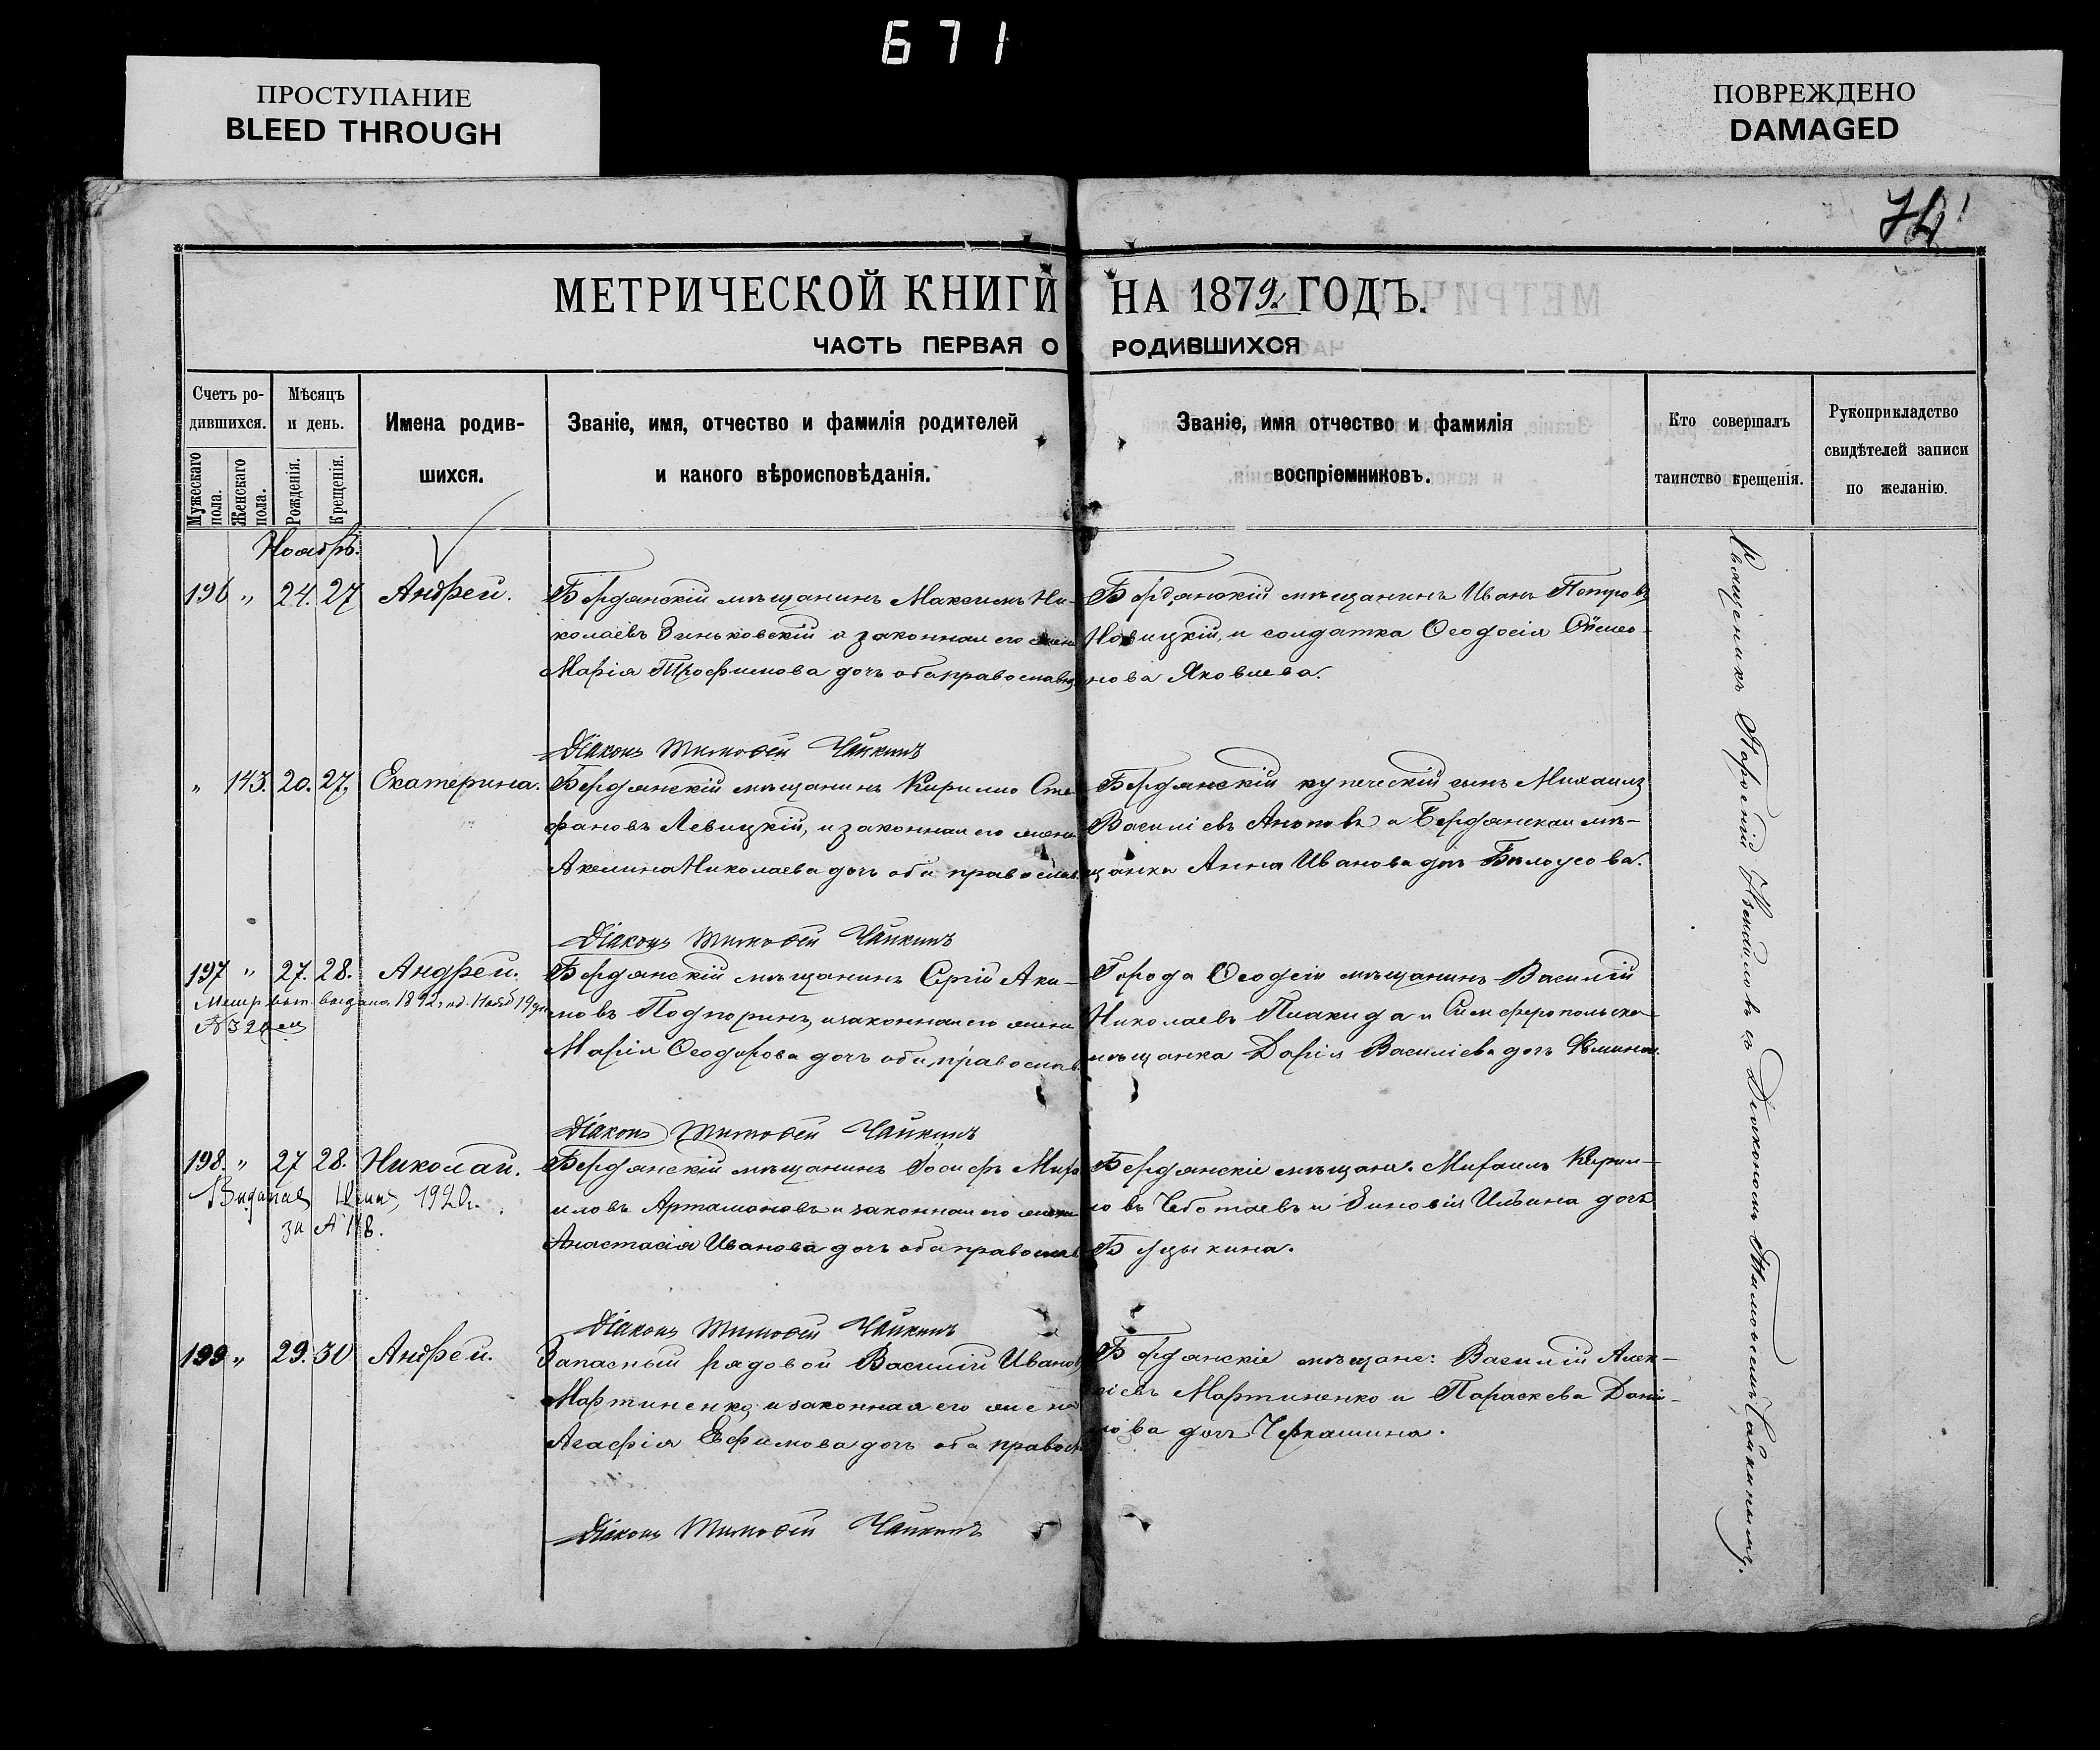 671
ПРОСТУПАНИЕ
BLEED THROUGH
ПОВРЕЖДЕНО
DAMAGED
МЕТРИЧЕСКОЙ КНИГИ НА 1879 ГОДЪ.
ЧАСТЬ ПЕРВАЯ О РОДИВШИХСЯ
Счетъ ро-
дившихся.
Мужескаго пола.
Женскаго пола.
Мѣсяцъ
и день.
Рожденія.
Крещенія.
Имена родив-
шихся.
Званіе, имя, отчество и фамилія родителей
и какого вѣроисповѣданія.
Званіе, имя отчество и фамилія
воспріемниковъ.
Кто совершалъ
таинство крещенія.
Рукоприкладство
свидѣтелей записи
по желанію.
Ноябрь.
196 " 24. 27 Андрей.
Бердянскій мѣщанинъ Максимъ Ни-
колаевъ Зиньковскій и законная его жена
Марія Трофимова дочь оба православн
Бердянскій мѣщанинъ Иванъ Петровъ
Новицкій, и солдатка Ѳеодосія Симео-
нова Яковлева.
Діаконъ Тимофей Чайкинъ
" 143. 20. 27. Екатерина.
Бердянскій мѣщанинъ Кирилло Сте
фановъ Левицкій, и законная его жена
Акелина Николаева дочь оба православ.
Бердянскій купеческій сынъ Михаилъ
Василіевъ Аноповъ и Бердянская мѣ-
щанка Анна Иванова дочь Бѣлоусова.
Діаконъ Тимофей Чайкинъ
197 " 27. 28. Андрей.
выдана 1892
Бердянскій мѣщанинъ Сергій Аки-
мовъ Подпоринъ, и законная его жена
Марія Ѳеодорова дочь оба православ.
Города Ѳеодсіи мѣщанинъ Василій
Николаевъ Плакида и Симферопольская
мѣщанка Дарія Василіева дочь
Діаконъ Тимофей Чайкинъ
198. " 27 28. Николай.
1920г.
за № 118.
Бердянскій мѣщанинъ Іосифъ Миха
иловъ Артамоновъ и законная его жена
Анастасія Иванова дочь оба православ
Бердянскіе мѣщане: Михаилъ Кирил-
ловъ Чеботаевъ и Зиновія Ильина дочь
Буцыкина.
Діаконъ Тимофей Чайкинъ
199 " 29. 30 Андрей.
Запасный рядовой Василій Иванов
Мартиненко, и законная его жена
Агафія Ефимова дочь оба правосл
Бердянскіе мѣщане: Василій Алек-
сіевъ Мартиненко и Параскева Дани-
лова дочь Черкашина.
Діаконъ Тимофей Чайкинъ
Священникъ Георгій Измаиловъ съ Діакономъ Тимофеемъ Чайкинымъ.